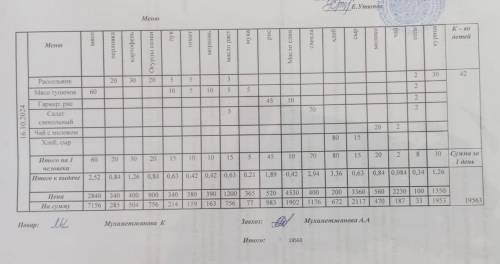 Е.Утюпова
Меню
16.10.2024
Меню мясо перловка картофель Огурцы солен лук томат морковь масло раст мука рис Масло слив свекла хлеб сыр молоко чай соль курица К – во детей
Рассольник 20 30 20 5 5 3 2 30 42
Мясо тушеное 60 10 5 10 5 5 2
Гарнир: рис 45 10 2
Салат свекольный 3 70 2
Чай с молоком 20 2
Хлеб, сыр 80 15
Итого на 1 человека 60 20 30 20 15 10 10 15 5 45 10 70 80 15 20 2 8 30 Сумма за 1 день
Итого к выдаче 2,52 0,84 1,26 0,84 0,63 0,42 0,42 0,63 0,21 1,89 0,42 2,94 3,36 0,63 0,84 0,084 0,34 1,26
Цена 2840 340 400 900 340 380 390 1200 365 520 4530 400 200 3360 560 2230 100 1550
На сумму 7156 285 504 756 214 159 163 756 77 983 1902 1176 672 2117 470 187 33 1953 19563
Повар: Мухаметжанова К Завхоз: Мухаметжанова А.А
Итого: 19563